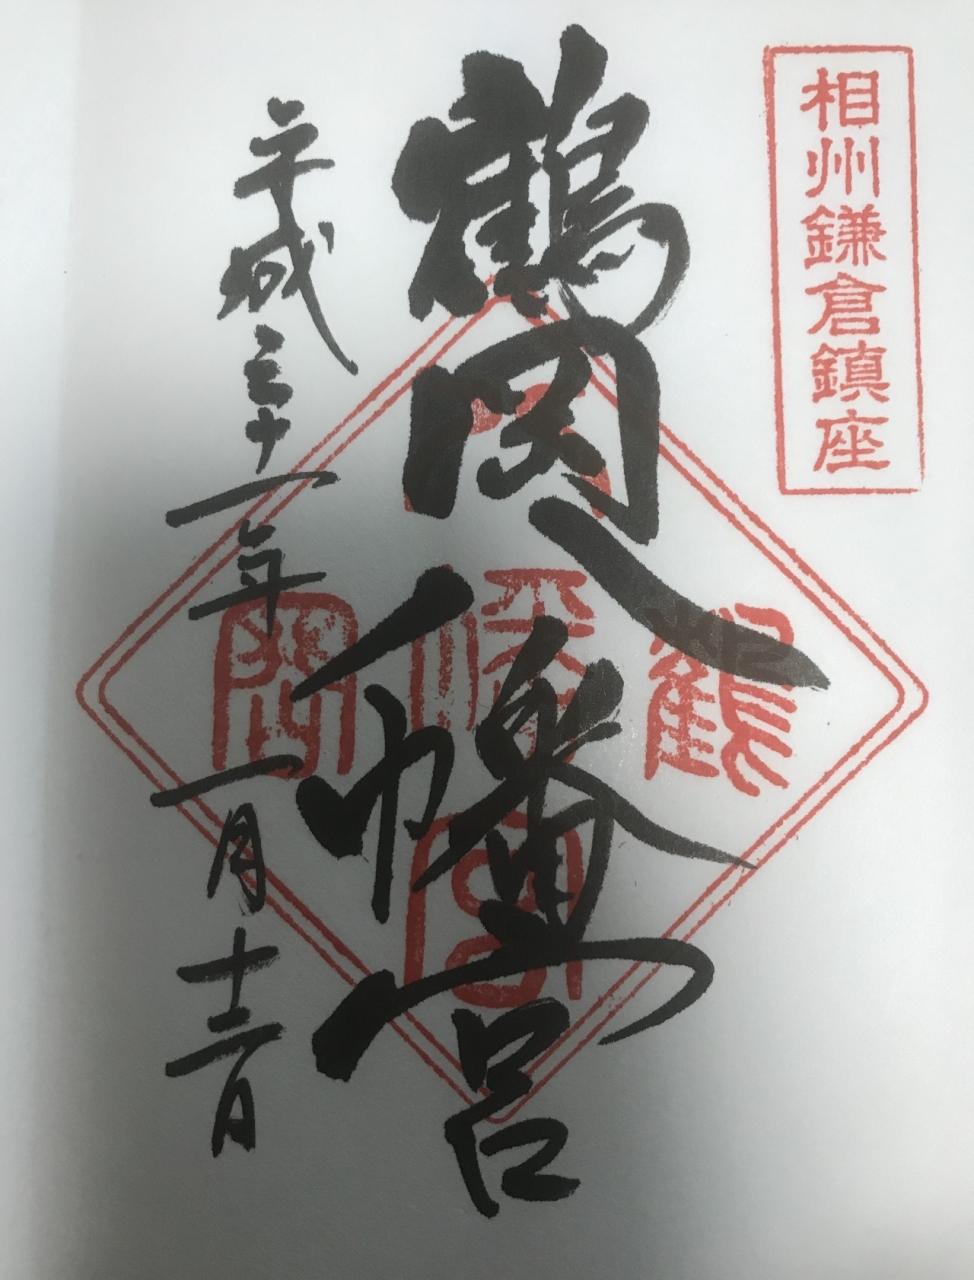 相州鎌倉鎮座
鶴岡八幡宮
平成三十一年一月十二日
鶴岡八幡宮